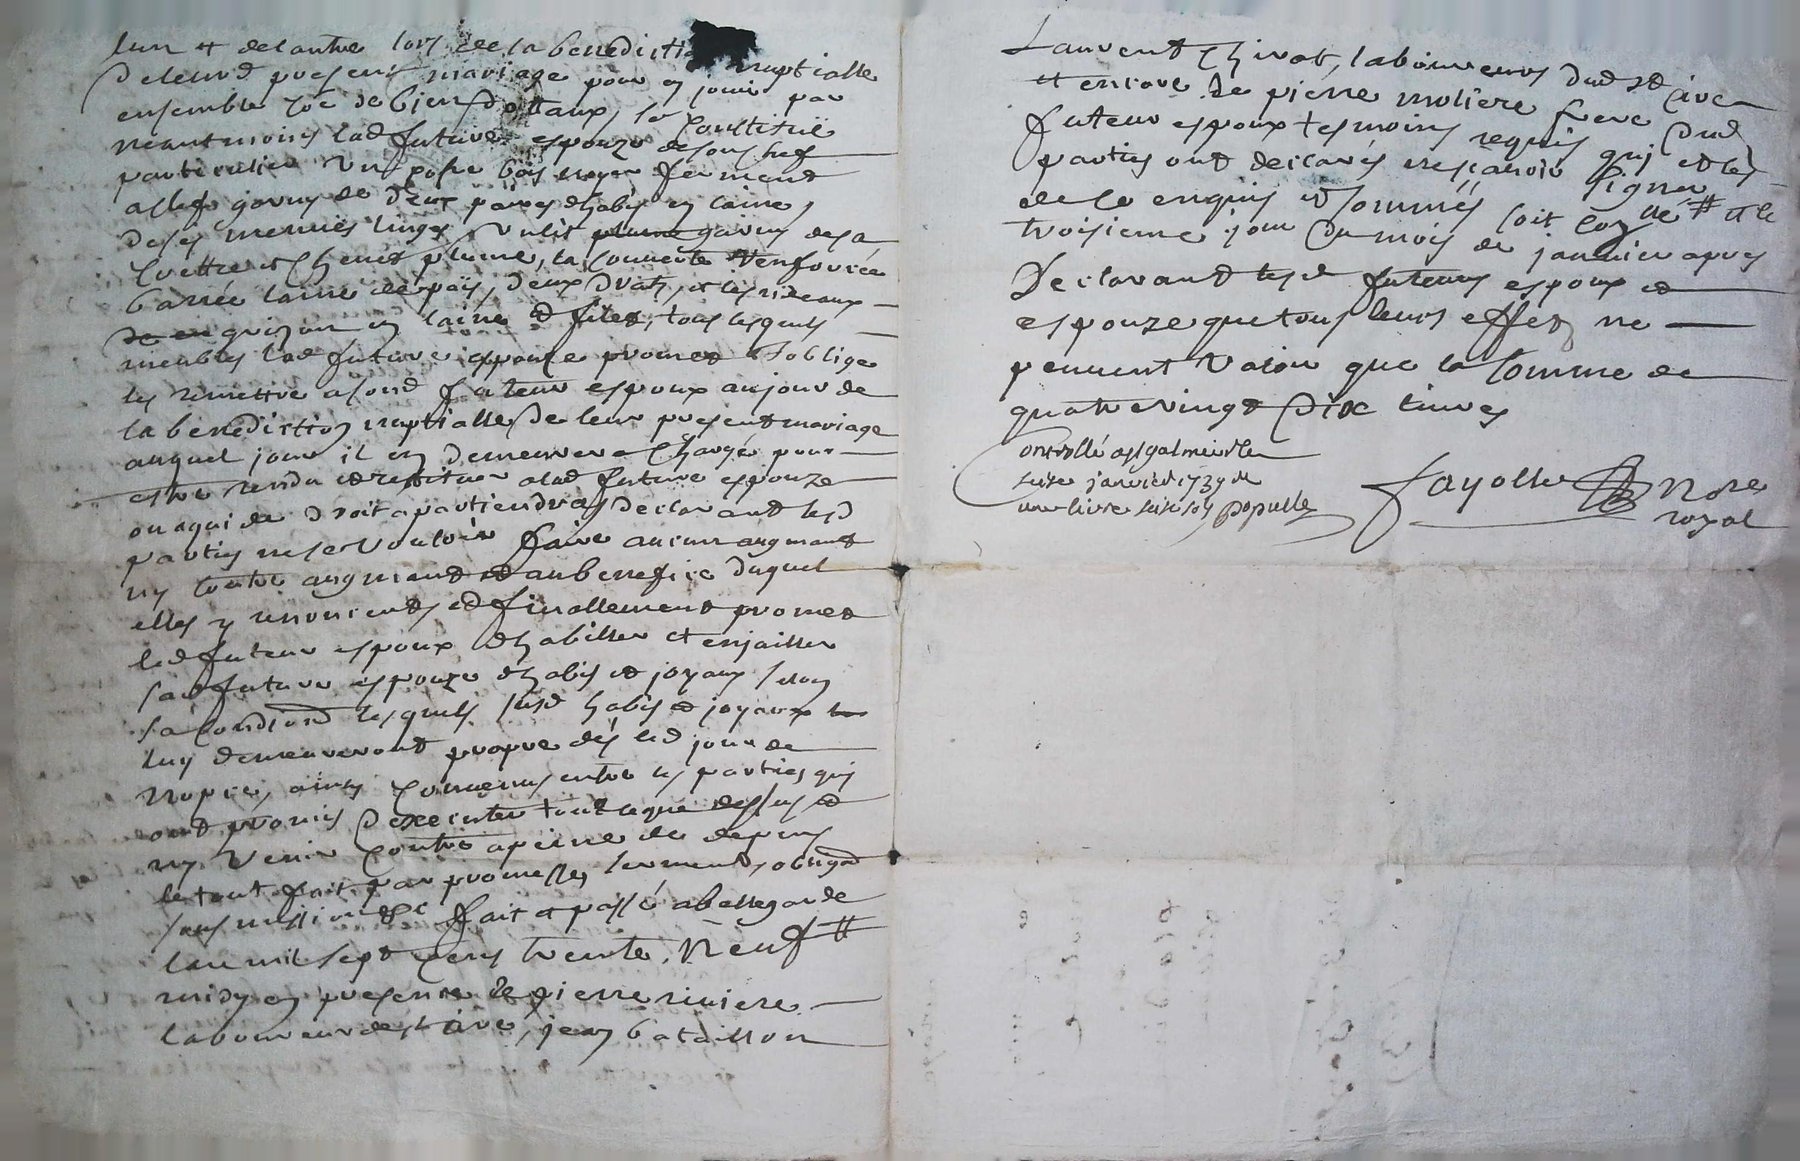 lun et delautre lors de la benediction nuptialle
de leurd present mariage pour en jouir par
ensemble de biens dottaux, se Constitue
neantmoins lad future espouze de son chef
particulier un coffre bois noyer fermant
a clef garny de deux paires dhabis en laine,
de ses menues linges, un lit garny de sa
Coettre et Chevet plume, la Couverte
barrée laine de païs, deux draps, et les rideaux
en laine & filet, tous lesquels
meubles lad future espouze promet & soblige
les remettre a sond futeur espoux au jour de
la benediction nuptialle de leur present mariage
auquel jour il en demeurera Chargé pour
estre rendu et restituer a lad future espouze
ou a qui de droit apartiendra, declarant lesd
parties ne se vouloir faire aucun augmant
ny contre augmant et au benefice duquel
elles y renoncent, et finallement promet
led futeur espoux dhabiller et enjailler
sad future espouze dhabis et joyaux selon
sa Condiond lesquels susd habis et joyaux
luy demeureront propre dés led jour de
nopces, ainsy Convenus entre les parties qui
ont promis dexecuter tout ce que dessus et
ny venir Contre a peine de depens
le tout fait par promesses, serments, obligaon
sousmissions &c fait et passé a bellegarde
lan mil sept cens trente neuf
midy en presence de pierre riviere
laboureur de st Cire, jean bataillon
Laurent Chirat, laboureurs dud st Cire
et encore de pierre moliere frere dud
futeur espoux tesmoins requis qui et les
parties ont declarés ne scavoir signer
de ce enquis et sommés soit Con lé # et le
troisieme jour du mois de janvier apres
Declarant lesd futeurs espoux et
espouze que tous leurs effets ne
peuvent valoir que la somme de
quatre vingt dix livres
Controllé a st galmier le
seize janvier 1739 R
une livre seize sols populle
fayolle Nore
royal